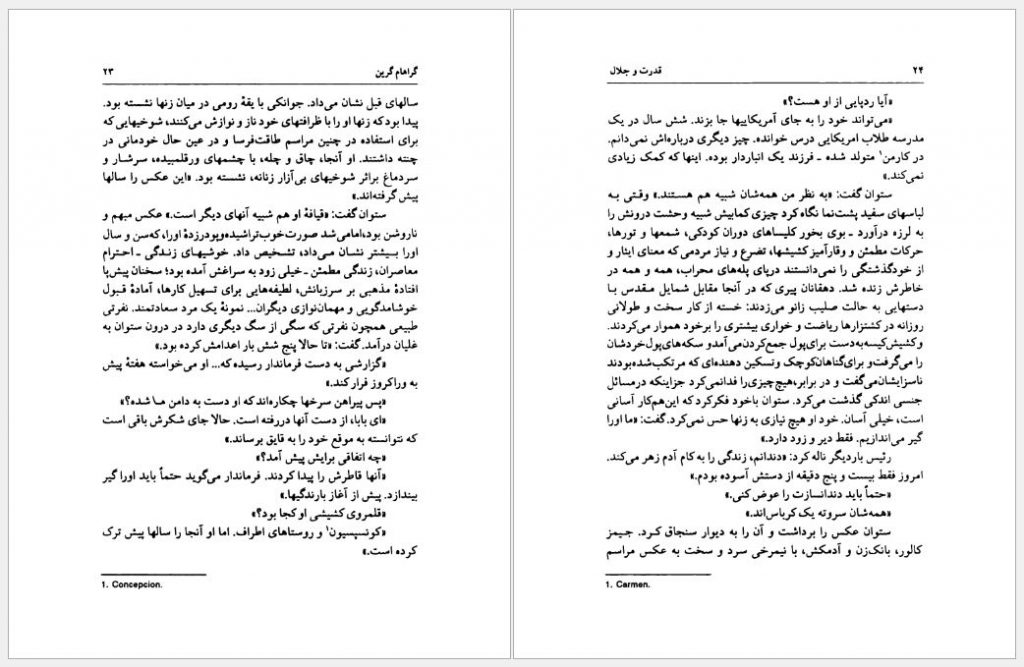 گراهام گرین ۲۳
سالهای قبل نشان می‌داد. جوانکی با یقهٔ رومی در میان زنها نشسته بود.
پیدا بود که زنها او را با ظرافتهای خود ناز و نوازش می‌کنند، شوخیهایی که
برای استفاده در چنین مراسم طاقت‌فرسا و در عین حال خودمانی در
چنته داشتند. او آنجا، چاق و چله، با چشمهای ورقلمبیده، سرشار و
سردماغ براثر شوخیهای بی‌آزار زنانه، نشسته بود. «این عکس را سالها
پیش گرفته‌اند.»
ستوان گفت: «قیافهٔ او هم شبیه آنهای دیگر است.» عکس مبهم و
ناروشن بود، اما می‌شد صورت خوب تراشیده و پودرزدهٔ اورا، که سن و سال
اورا بیشتر نشان می‌داد، تشخیص داد. خوشیهای زندگی ـ احترام
معاصران، زندگی مطمئن ـ خیلی زود به سراغش آمده بود؛ سخنان پیش‌پا
افتادهٔ مذهبی بر سرزبانش، لطیفه‌هایی برای تسهیل کارها، آمادهٔ قبول
خوشامدگویی و مهمان‌نوازی دیگران... نمونهٔ یک مرد سعادتمند. نفرتی
طبیعی همچون نفرتی که سگی از سگ دیگری دارد در درون ستوان به
غلیان درآمد. گفت: «تا حالا پنج شش بار اعدامش کرده بود.»
«گزارشی به دست فرماندار رسیده که... او می‌خواسته هفتهٔ پیش
به وراکروز فرار کند.»
«پس پیراهن سرخها چکاره‌اند که او دست به دامن ما شده؟»
«ای بابا، از دست آنها دررفته است. حالا جای شکرش باقی است
که نتوانسته به موقع خود را به قایق برساند.»
«چه اتفاقی برایش پیش آمد؟»
«آنها قاطرش را پیدا کردند. فرماندار می‌گوید حتماً باید اورا گیر
بیندازد. پیش از آغاز بارندگیها.»
«قلمروی کشیشی او کجا بود؟»
«کونسپسیون۱ و روستاهای اطراف. اما او آنجا را سالها پیش ترک
کرده است.»
1. Concepcion.
۲۴ قدرت و جلال
«آیا ردپایی از او هست؟»
«می‌تواند خود را به جای آمریکاییها جا بزند. شش سال در یک
مدرسه طلاب امریکایی درس خوانده. چیز دیگری درباره‌اش نمی‌دانم.
در کارمن۱ متولد شده ـ فرزند یک انباردار بوده. اینها که کمک زیادی
نمی‌کند.»
ستوان گفت: «به نظر من همه‌شان شبیه هم هستند.» وقتی به
لباسهای سفید پشت‌نما نگاه کرد چیزی کمابیش شبیه وحشت درونش را
به لرزه درآورد ـ بوی بخور کلیساهای دوران کودکی، شمعها و تورها،
حرکات مطمئن و وقارآمیز کشیشها، تضرع و نیاز مردمی که معنای ایثار و
از خودگذشتگی را نمی‌دانستند درپای پله‌های محراب، همه و همه در
خاطرش زنده شد. دهقانان پیری که در آنجا مقابل شمایل مقدس با
دستهایی به حالت صلیب زانو می‌زدند: خسته از کار سخت و طولانی
روزانه در کشتزارها ریاضت و خواری بیشتری را برخود هموار می‌کردند.
و کشیش کیسه‌به‌دست برای پول جمع کردن می‌آمد و سکه‌های پول خردشان
را می‌گرفت و برای گناهان کوچک و تسکین دهنده‌ای که مرتکب شده بودند
ناسزایشان می‌گفت و در برابر، هیچ چیزی را فدا نمی‌کرد جز اینکه در مسائل
جنسی اندکی گذشت می‌کرد. ستوان باخود فکر کرد که این هم کار آسانی
است، خیلی آسان. خود او هیچ نیازی به زنها حس نمی‌کرد. گفت: «ما اورا
گیر می‌اندازیم. فقط دیر و زود دارد.»
رئیس باردیگر ناله کرد: «دندانم، زندگی را به کام آدم زهر می‌کند.
امروز فقط بیست و پنج دقیقه از دستش آسوده بودم.»
«حتماً باید دندانسازت را عوض کنی.»
«همه‌شان سروته یک کرباس‌اند.»
ستوان عکس را برداشت و آن را به دیوار سنجاق کرد. جیمز
کالور، بانک‌زن و آدمکش، با نیمرخی سرد و سخت به عکس مراسم
1. Carmen.